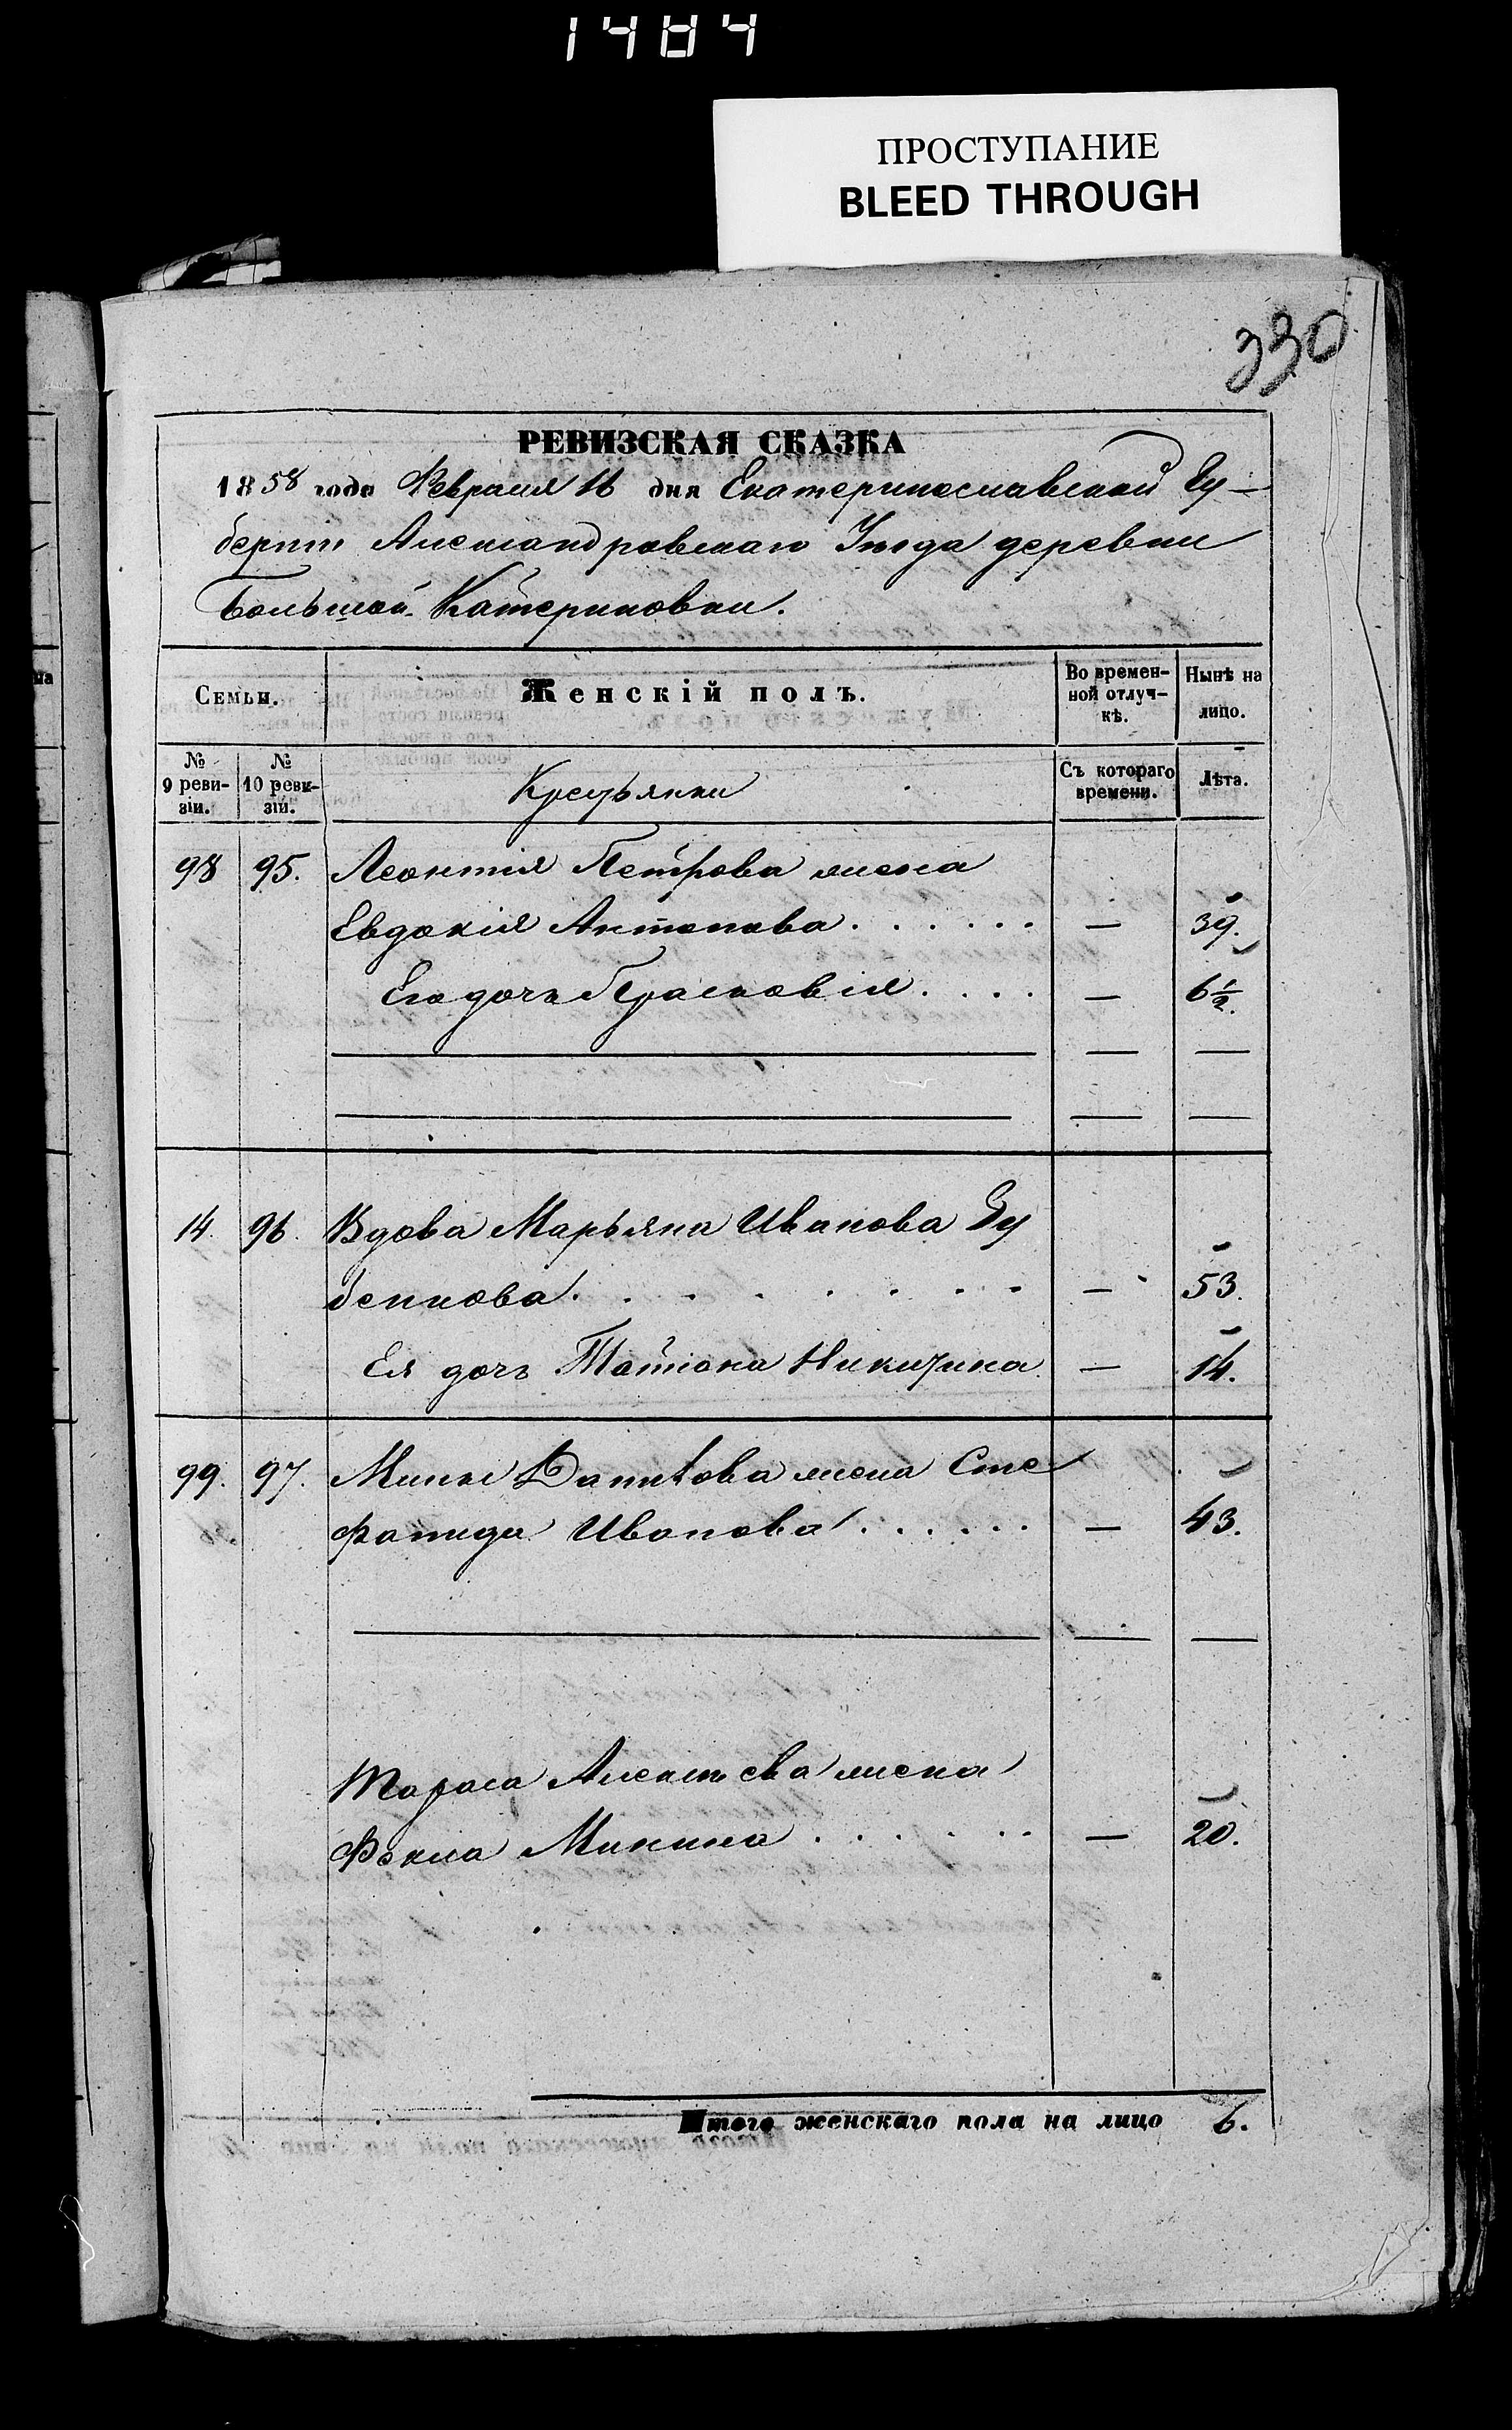 1484
ПРОСТУПАНИЕ
BLEED THROUGH
330
РЕВИЗСКАЯ СКАЗКА
1858 года Февраля 16 дня Екатеринославской Гу-
берніи Александровскаго Уѣзда деревни
Большой Катериновки.
Семьи. Женскій полъ. Во времен-ной отлуч-кѣ. Нынѣ на лицо.
№ 9 реви-зіи. № 10 реви-зіи. Крестьянки Съ котораго времени. Лѣта.
98 95. Леонтія Петрова жена
Евдокія Антонова . . . . . . — 39.
Его дочь Прасковія . . . . — 6½.
14. 96. Вдова Марьяна Иванова Гу
бенкова . . . . . . . . — 53.
Ея дочь Татіана Никитина — 14.
99. 97. Мины Данилова жена Сте
фанида Иванова . . . . . . — 43.
Тараса Алексѣева жена
Фекла Минина . . . . . . — 20.
Итого женскаго пола на лицо 6.